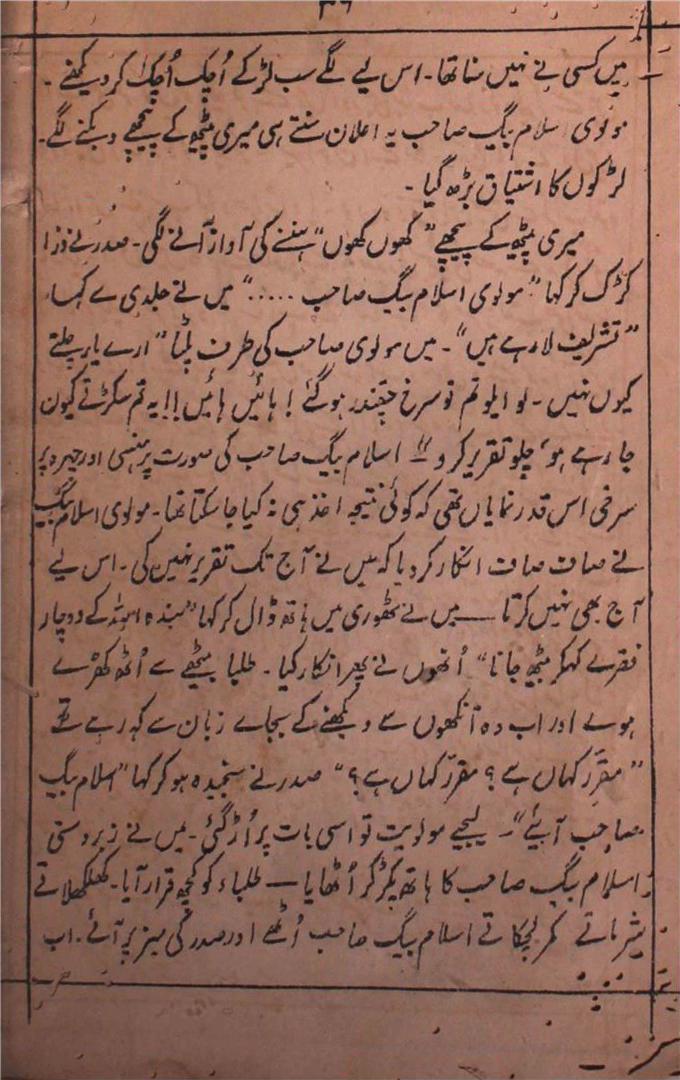 ۳۶
میں کسی نے نہیں سنا تھا۔ اس لیے لگے سب لڑکے اُچک اُچک کر دیکھنے ۔
مولوی اسلام بیگ صاحب یہ اعلان سنتے ہی میری پیٹھ کے پیچھے دبکنے لگے۔
لڑکوں کا اشتیاق بڑھ گیا ۔
میری پیٹھ کے پیچھے ” کھوں کھوں“ ہنسنے کی آواز آنے لگی ۔ صدر نے ذرا
کڑک کر کہا ” مولوی اسلام بیگ صاحب ..... “ میں نے جلدی سے کہا،
” تشریف لا رہے ہیں“ ۔ میں مولوی صاحب کی طرف پلٹا ” ارے یار چلتے
کیوں نہیں ۔ لو ایلو تم تو سرخ چقندر ہو گئے ! ہائیں ہائیں !! یہ تم سکڑتے کیوں
جا رہے ہو، چلو تقریر کرو “ اسلام بیگ صاحب کی صورت پر ہنسی اور چہرہ پر
سرخی اس قدر نمایاں تھی کہ کوئی نتیجہ اخذ ہی نہ کیا جا سکتا تھا ۔ مولوی اسلام بیگ
نے صاف صاف انکار کر دیا کہ میں نے آج تک تقریر نہیں کی ۔ اس لیے
آج بھی نہیں کرتا — میں نے ٹھوری میں ہاتھ ڈال کر کہا ” بندہ اللہ کے دو چار
فقرے کہکر بیٹھ جانا “ اُنھوں نے پھر انکار کیا ۔ طلبا بیٹھے سے اُٹھ کھڑے
ہوئے اور اب وہ آنکھوں سے دیکھنے کے بجائے زبان سے کہہ رہے تھے
” مقرّر کہاں ہے ؟ مقرّر کہاں ہے ؟ “ صدر نے سنجیدہ ہو کر کہا ” اسلام بیگ
صاحب آیئے“ ۔ لیجیے مولویت تو اسی بات پر اُڑ گئی ۔ میں نے زبردستی
اسلام بیگ صاحب کا ہاتھ پکڑ کر اُٹھایا — طلباء کو کچھ قرار آیا ۔ کھلکھلاتے
شرماتے کمر لچکاتے اسلام بیگ صاحب اُٹھے اور صدر کی میز پر آئے ۔ اب